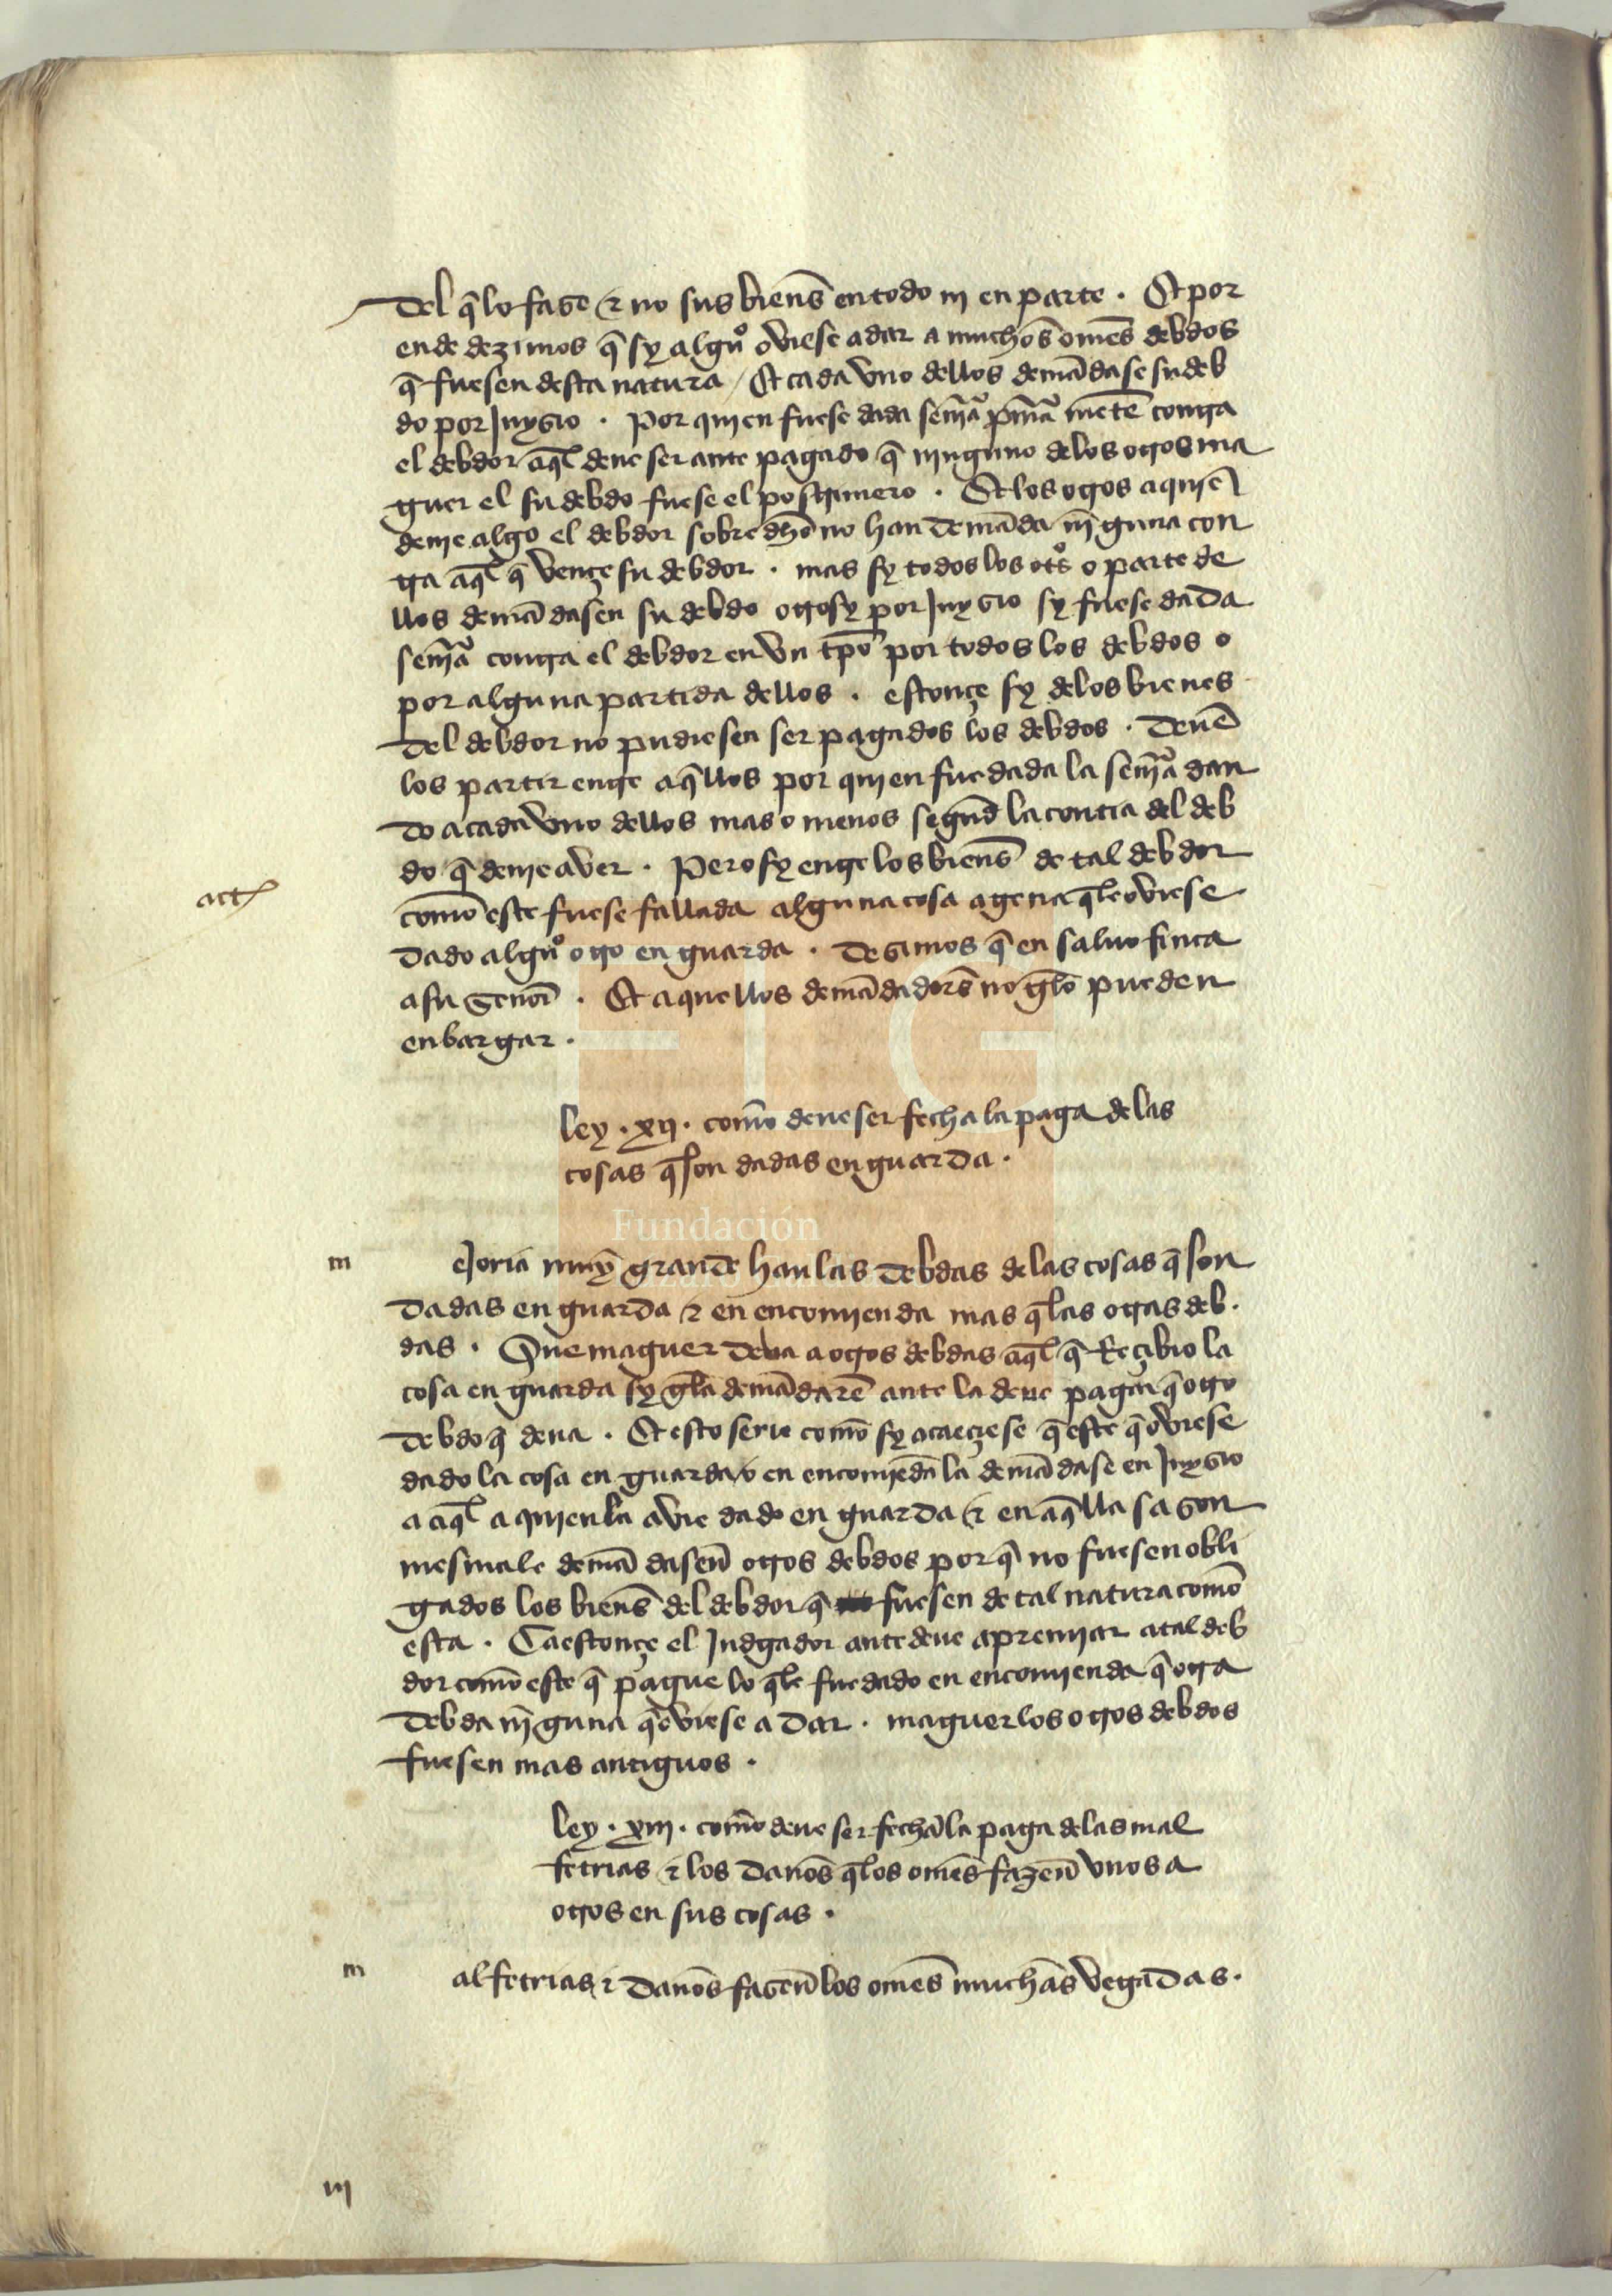 del q̃ lo fase & no sus bienẽs en todo nj en parte . Et por
ende dezimos q̃ sy algũo oviese a dar a muchõs omẽs debdos
q̃ fuesen desta natura / Et cada vno dellos demãdase su deb
do por Juysio . Por quien fuese dada senĩa p̃m̃a mẽte contra
el debdor aq̃l deue ser ante pagado q̃ njnguno de los otros ma
guer el su debdo fuese el postrimero . Et los otros a quiẽ
deue algo el debdor sobre dh̃o no han demãda nĩguna con
tra aq̃l q̃ vençe su debdor . mas sy todos los otõs o parte de
llos demãdasen su debdo otrosy por Juysio sy fuese dada
senĩa contra el debdor en vn tp̃o por todos los debdos o
por alguna partida dellos . estonçe sy de los bienes
del debdor no pudiesen ser pagados los debdos . deuẽ
los partir entre aq̃llos por quien fue dada la senĩa dan
do a cada vno dellos mas o menos segũd la contia del deb
do q̃ deue aver . Pero sy entre los bienẽs de tal debdor
act
comõ este fuese fallada alguna cosa agena q̃ le oviese
dado algũo otro en guarda . desimos q̃ en saluo finca
a su senor̃ . Et aquellos demãdadorẽs no gelo pueden
enbargar .
ley . xij . comõ deue ser fecha la paga de las
cosas q̃ son dadas en guarda .
m
eJoria muỹ grande han las debdas de las cosas q̃ son
dadas en guarda & en encomjenda mas q̃ las otras deb .
das . Que maguer deua a otros debdas aq̃l q̃ Reçibio la
cosa en guarda sy gela demãdarẽ ante la deue pagar q̃ otro
debdo q̃ deua . Et esto serie comõ sy acaeçiese q̃ este q̃ oviese
dado la cosa en guarda o en encomjẽda la demãdase en Juysio
a aq̃l a quien la avie dado en guarda & en aq̃lla sason
mesma le demãdasen̄ otros debdos por q̃ no fuesen obli
gados los bienẽs del debdor q̃ fuesen de tal natura comõ
esta . Ca estonçe el Judgador ante deue apremjar a tal deb
dor comõ este q̃ pague lo q̃ le fue dado en encomjenda q̃ otra
debda nĩguna q̃ oviese a dar . maguer los otros debdos
fuesen mas antiguos .
ley . xiij . comõ deue ser fecha la paga de las mal
fetrias & los danõs q̃ los omẽs fazen̄ vnos a
otros en sus cosas .
m
alfetrias & danõs fasen̄ los omẽs muchãs vegadas .
Fundación